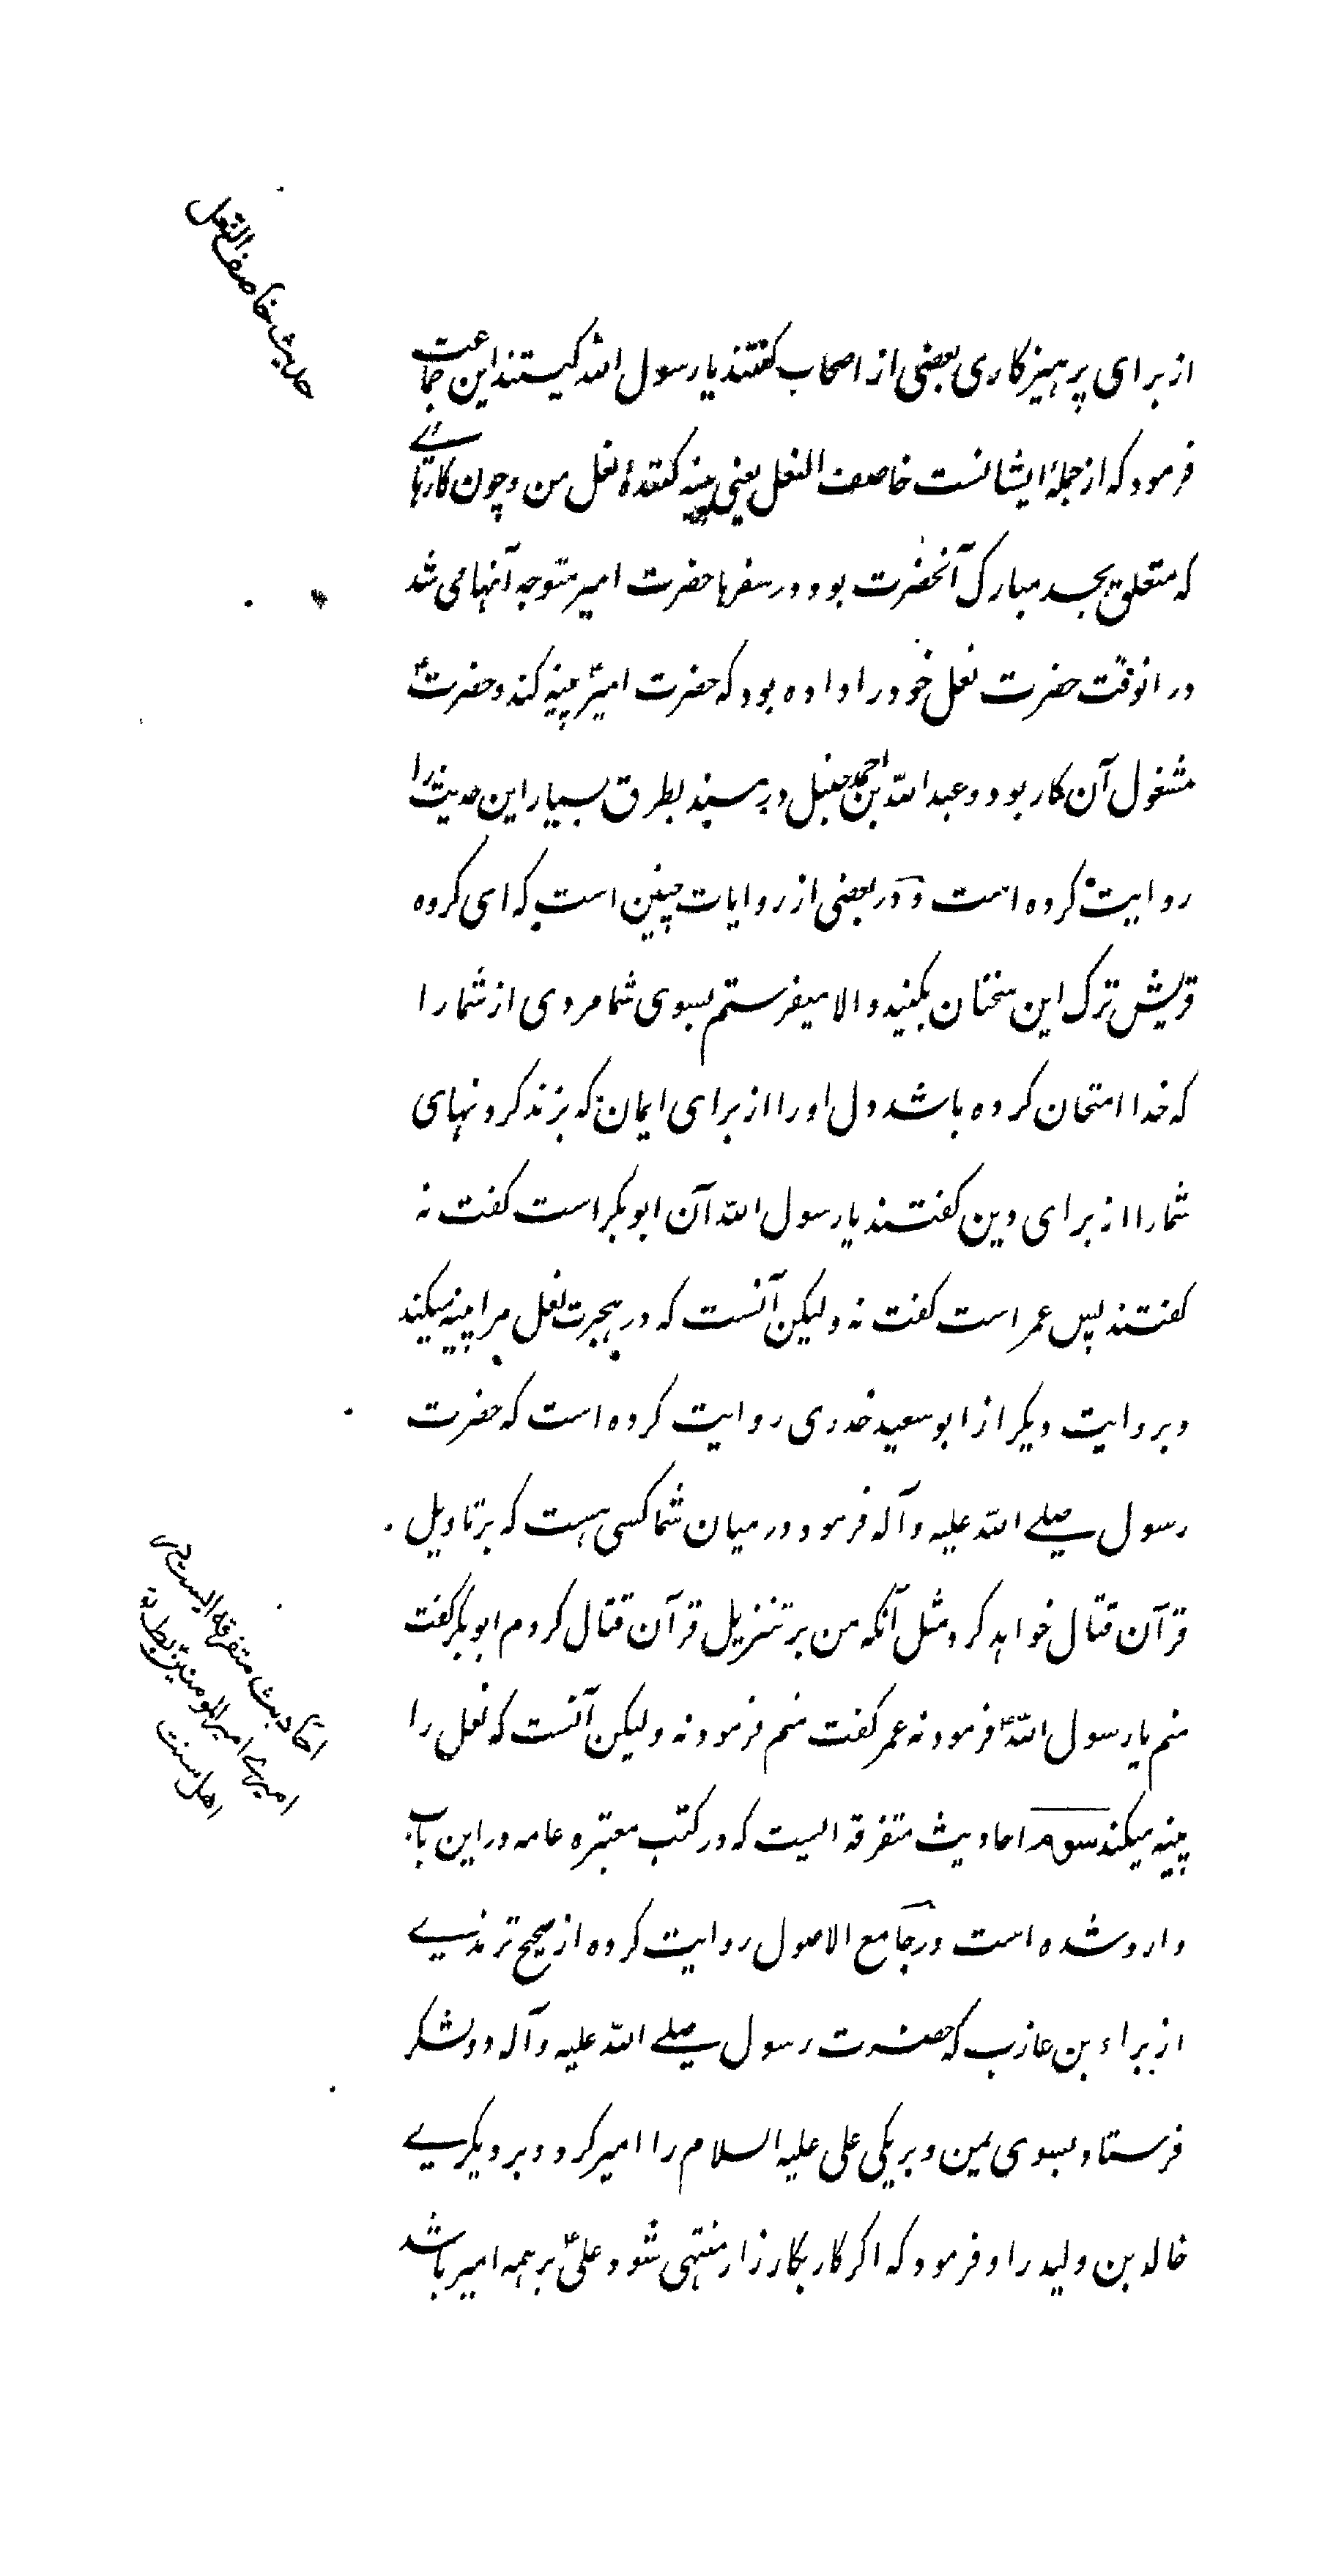 حدیث خاصف النعل
از برای پرهیزکاری بعضی از اصحاب کفتند یا رسول الله کیستند این جماعت
فرمود که از جملهٔ ایشانست خاصف النعل یعنی پینه کنندهٔ نعل من و چون کارهائے
که متعلق بجسد مبارک آنحضرت بود در سفرها حضرت امیر متوجه آنها می شد
در انوقت حضرت نعل خود را داده بود که حضرت امیرؑ پینه کند و حضرتؑ
مشغول آن کار بود و عبد الله بن احمد حنبل در مسند بطرق بسیار این حدیث را
روایت کرده است و در بعضی از روایات چنین است که ای کروه
قریش ترک این سخنان بکنید و الا میفرستم بسوی شما مردی از شما را
که خدا امتحان کرده باشد دل او را از برای ایمان که بزند کردنهای
شما را از برای دین کفتند یا رسول الله آن ابو بکر است کفت نه
کفتند پس عمر است کفت نه ولیکن آنست که در هجرت نعل مرا پینه میکند
و بروایت دیکر از ابو سعید خدری روایت کرده است که حضرت
رسول صلے الله علیه و آله فرمود در میان شما کسی هست که بر تاویل
قرآن قتال خواهد کرد مثل آنکه من بر تنزیل قرآن قتال کردم ابو بکر کفت
منم یا رسول اللهؐ فرمود نه عمر کفت منم فرمود نه ولیکن آنست که نعل را
پینه میکند سوم احادیث متفرقه ایست که در کتب معتبره عامه در این باب
وارد شده است در جامع الاصول روایت کرده از صحیح ترمذے
از براء بن عازب که حضرت رسول صلے الله علیه و آله دو لشکر
فرستاد بسوی یمن و بر یکی علی علیه السلام را امیر کرد و بر دیکرے
خالد بن ولید را و فرمود که اکر کار بکارزار منتهی شود علیؑ بر همه امیر باشد
احادیث متفرقه ایست
امیرے امیر المومنین
اهل سنت